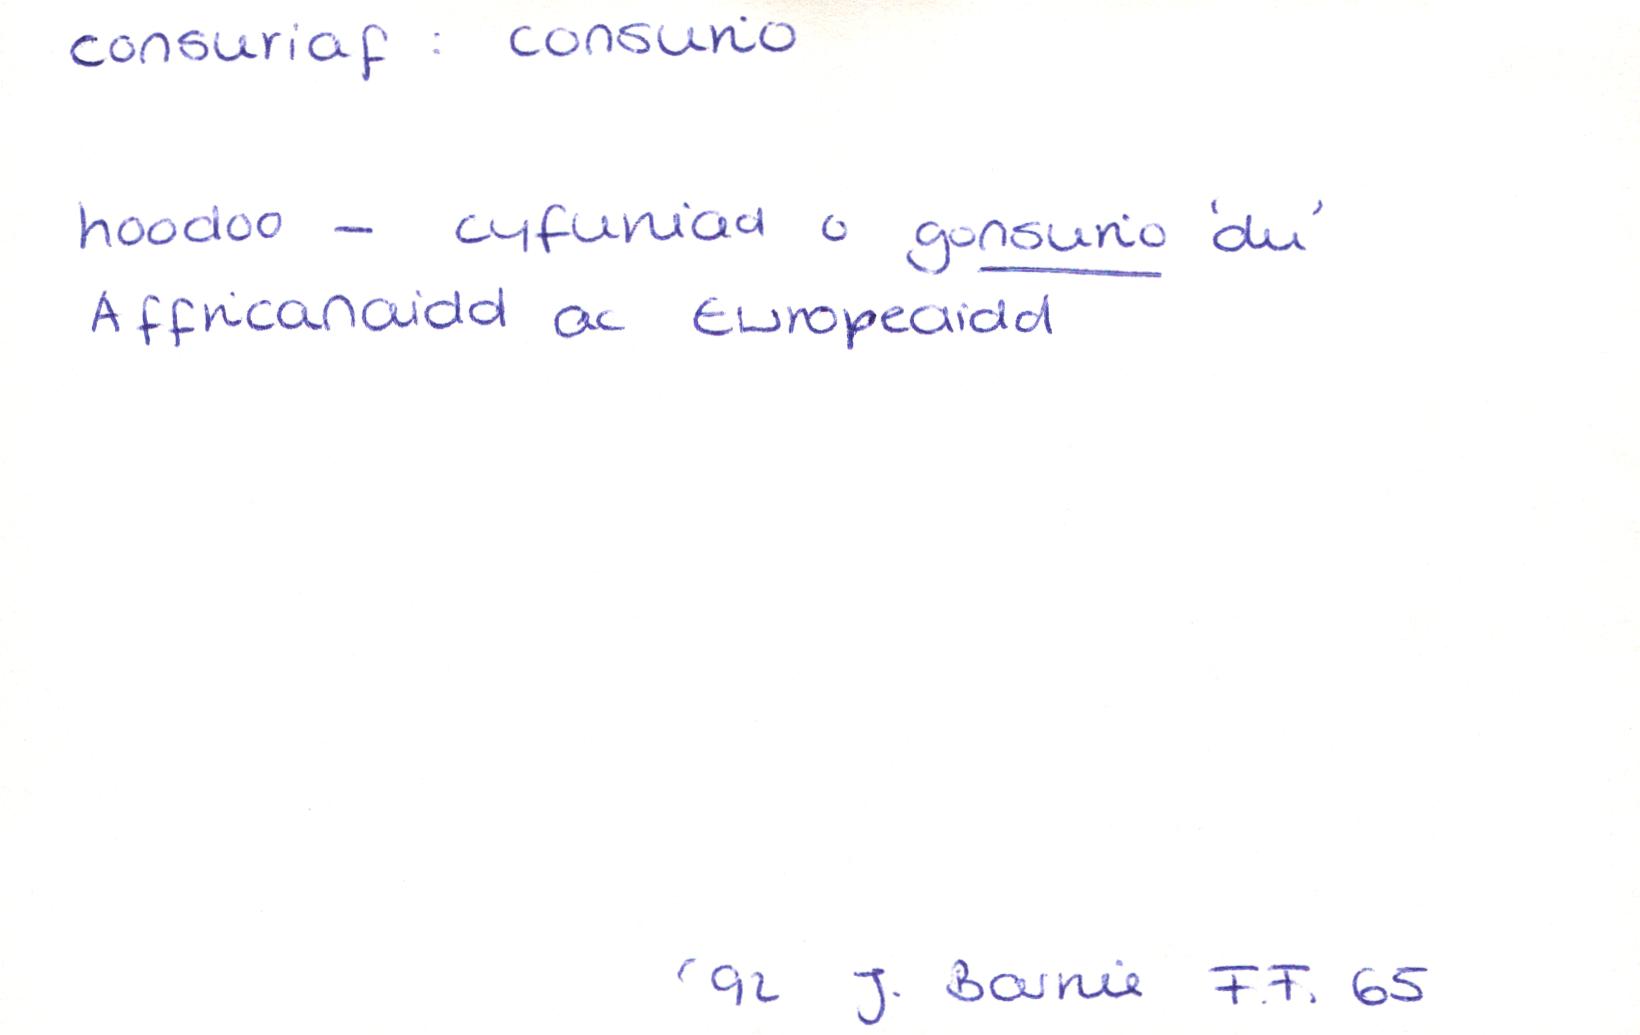 consuriaf : consurio
hoodoo – cyfuniad o gonsurio 'du'
Affricanaidd ac Ewropeaidd
'92 J. Barnie F.F. 65